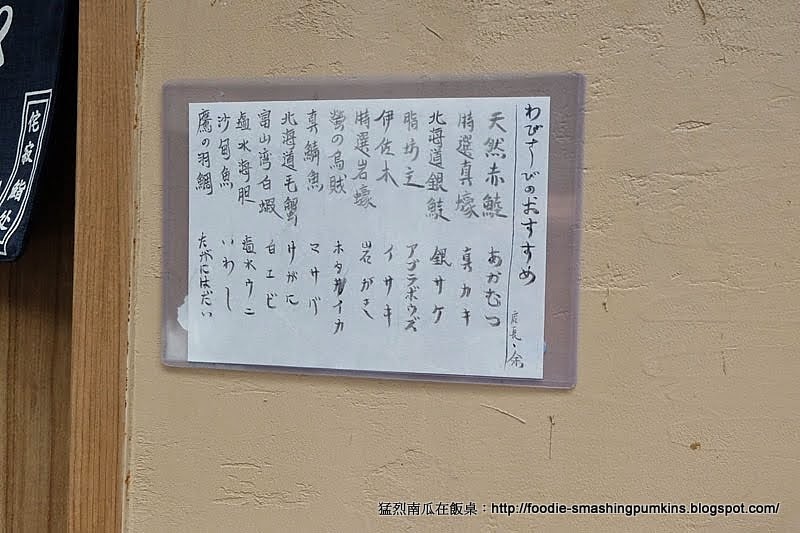 わびさびのおすすめ
店長、余
天然赤鯥 あかむつ
特選真蠔 真カキ
北海道銀鮭 銀サケ
脂坊主 アブラボウズ
伊佐木 イサキ
特選岩蠔 岩がき
螢の烏賊 ホタルイカ
真鯖魚 マサバ
北海道毛蟹 けがに
富山湾白蝦 白エビ
塩水海胆 塩水ウニ
沙甸魚 いわし
鷹の羽鯛 たかにはだい
侘寂鮨処
猛烈南瓜在飯桌：http://foodie-smashingpumkins.blogspot.com/